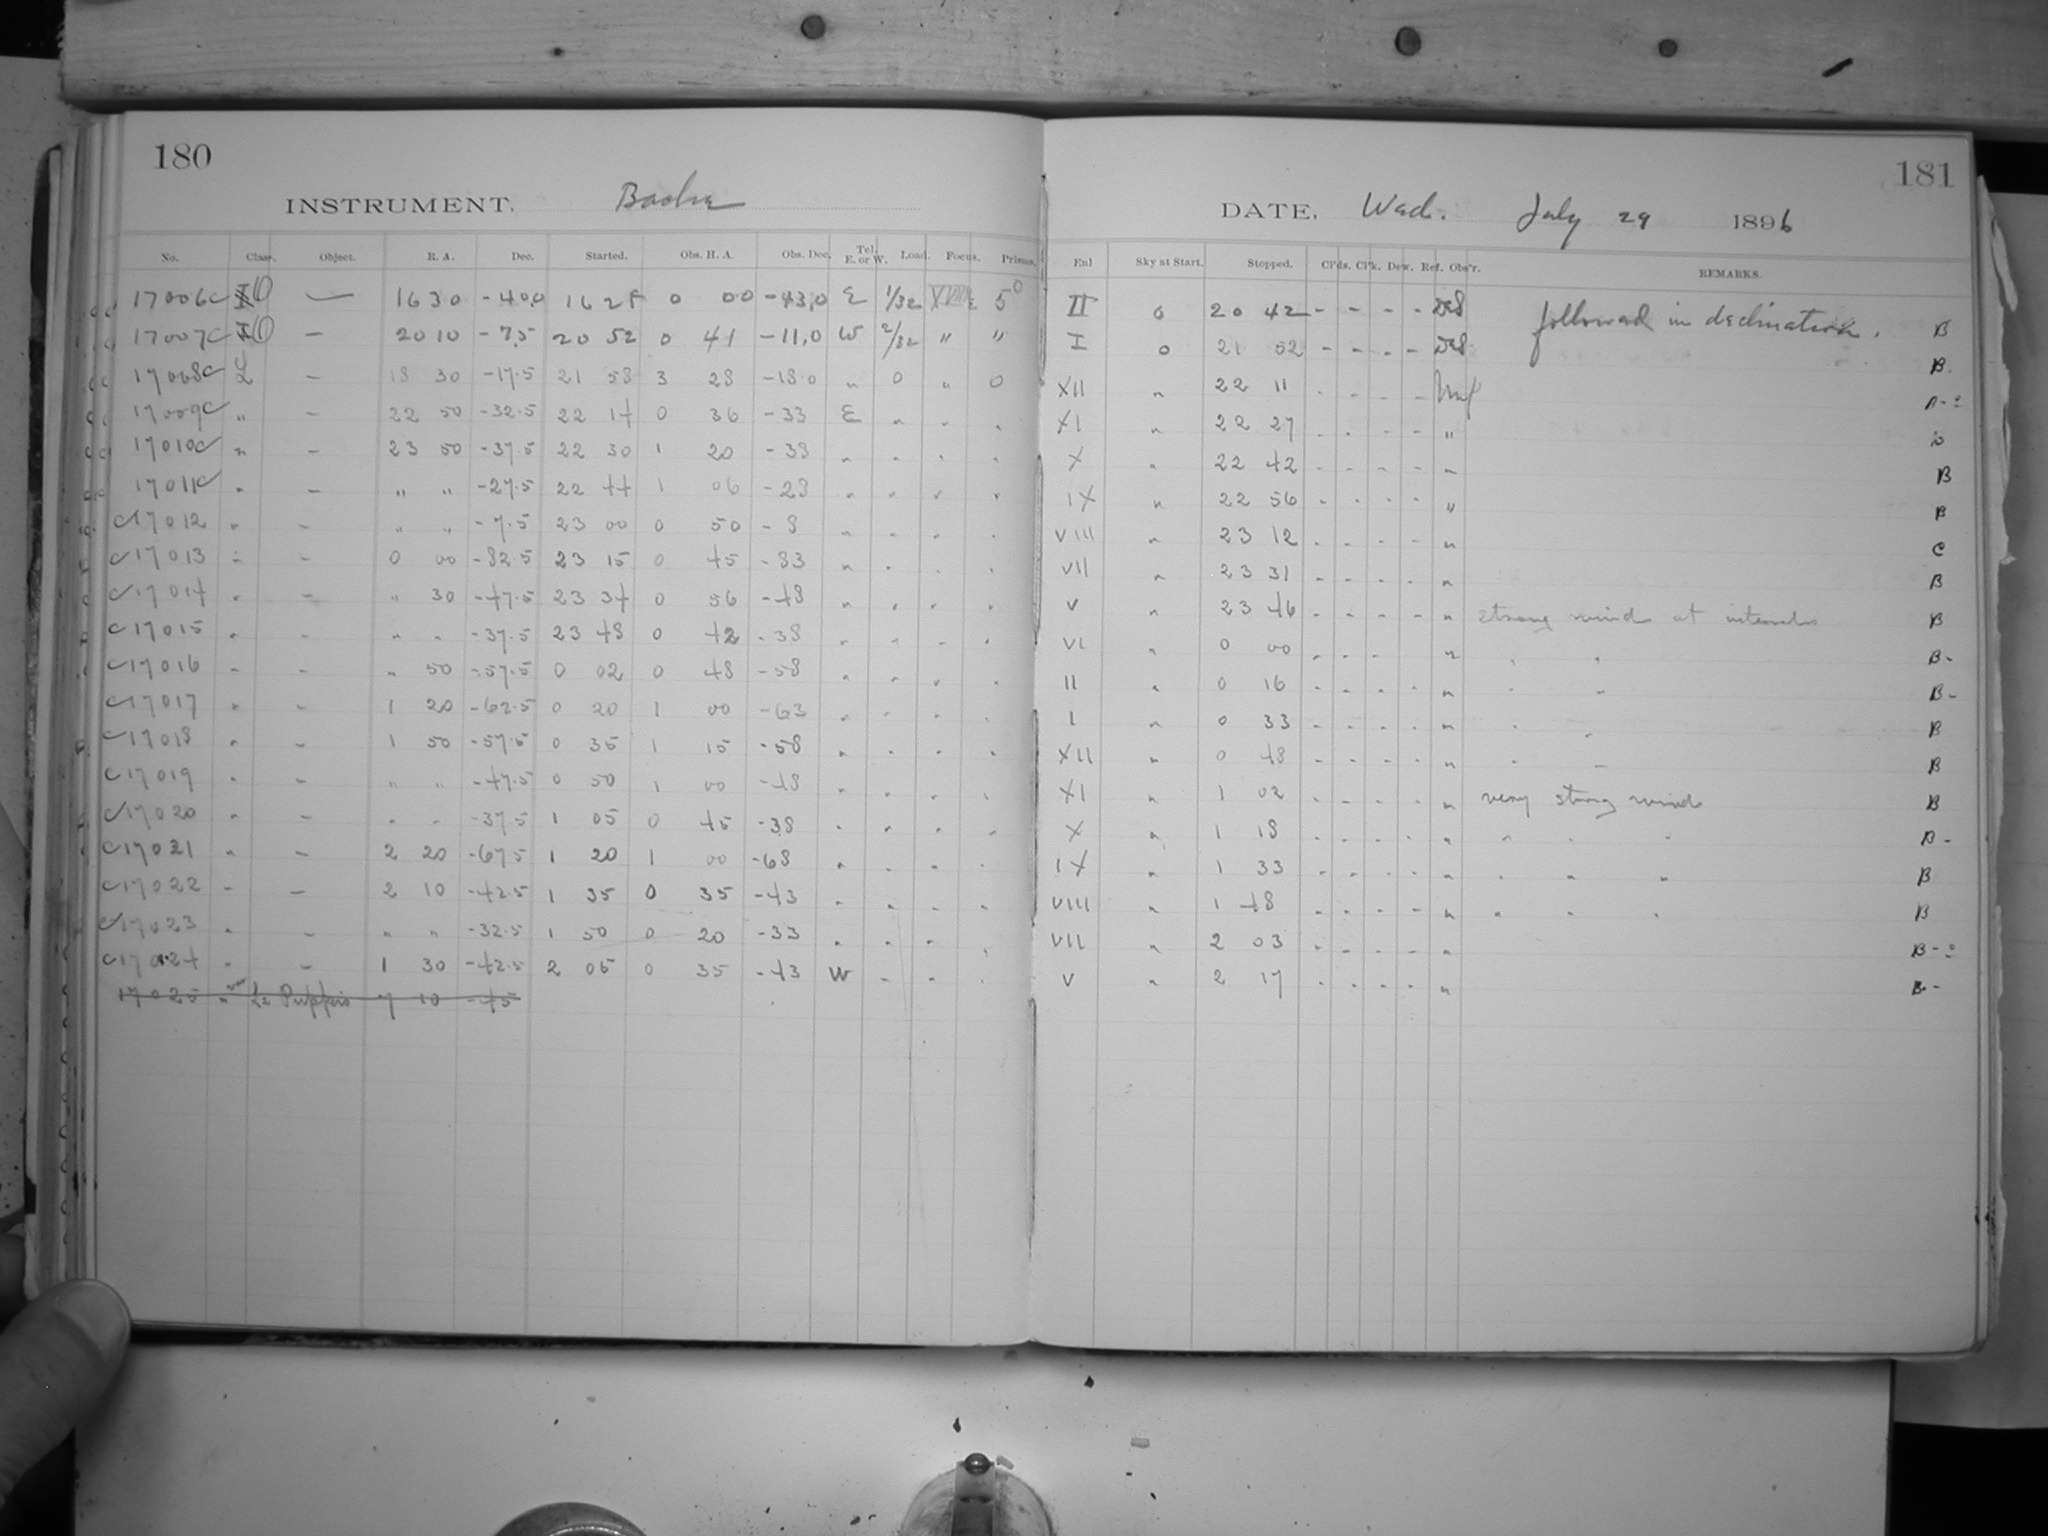 180
INSTRUMENT. Bache
No. Class. Object. R. A. Dec. Started. Obs. H. A. Obs. Dec. Tel. E. or W. Load. Focus. Prisms.
17006c — 16 30 -40,0 16 28 0 00 -43,0 E 1/32 5°
17007c — 20 10 -7,5 20 52 0 41 -11,0 W 2/32 " "
17008c L — 18 30 -17.5 21 58 3 28 -18.0 " 0 " 0
17009c " — 22 50 -32.5 22 14 0 36 -33 E " " "
17010c " — 23 50 -37.5 22 30 1 20 -38 " " " "
17011c " — " " -27.5 22 44 1 06 -28 " " " "
c17012 " — " " -7.5 23 00 0 50 -8 " " " "
c17013 " — 0 00 -82.5 23 15 0 45 -83 " " " "
c17014 " — " 30 -47.5 23 34 0 56 -48 " " " "
c17015 " — " " -37.5 23 48 0 42 -38 " " " "
c17016 " — " 50 -57.5 0 02 0 48 -58 " " " "
c17017 " — 1 20 -62.5 0 20 1 00 -63 " " " "
c17018 " — 1 50 -57.5 0 35 1 15 -58 " " " "
c17019 " — " " -47.5 0 50 1 00 -48 " " " "
c17020 " — " " -37.5 1 05 0 45 -38 " " " "
c17021 " — 2 20 -67.5 1 20 1 00 -68 " " " "
c17022 " — 2 10 -42.5 1 35 0 35 -43 " " " "
c17023 " — " " -32.5 1 50 0 20 -33 " " " "
c17024 " — 1 30 -42.5 2 05 0 35 -43 W " " "
17025 " L2 Puppis 7 10 -45
181
DATE, Wed. July 29 1896
Enl Sky at Start. Stopped. Cl'ds. Cl'k. Dew. Ref. Obs'r. REMARKS.
II 0 20 42 - - - - followed in declination. B
I 0 21 52 - - - - B.
XII " 22 11 - - - -
XI " 22 27 - - - - "
X " 22 42 - - - - " B
IX " 22 56 - - - - " B
VIII " 23 12 - - - - " C
VII " 23 31 - - - - " B
V " 23 46 - - - - " strong wind at intervals B
VI " 0 00 - - - - " " " B-
II " 0 16 - - - - " " " B-
I " 0 33 - - - - " " " B
XII " 0 48 - - - - " " " B
XI " 1 02 - - - - " very strong wind B
X " 1 18 - - - - " " " " B-
IX " 1 33 - - - - " " " " B
VIII " 1 48 - - - - " " " " B
VII " 2 03 - - - - "
V " 2 17 - - - - " B-